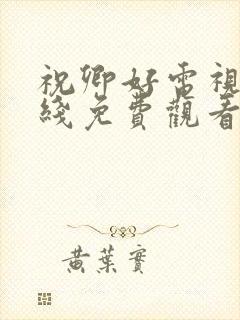 祝卿好電視
綫免費觀看
黃葉實